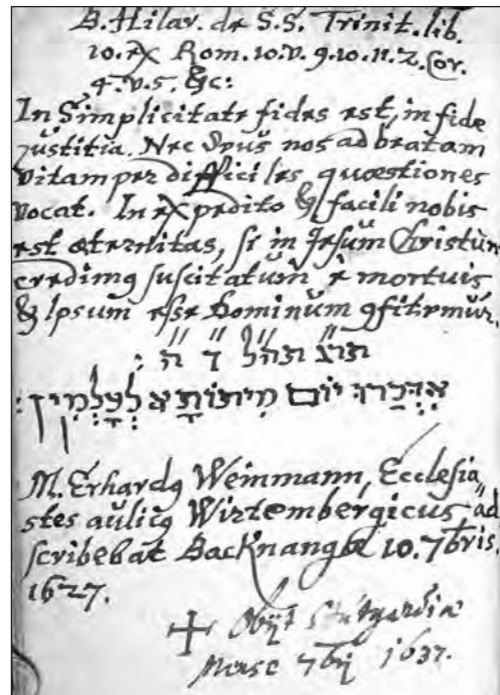 B. Hilar. de S.S. Trinit. lib.
10. ex Rom. 10. v. 9. 10. 11. 2. Cor.
4. v. 5. &c:
In Simplicitate fides est, in fide
iustitia. Nec Deus nos ad beatam
vitam per difficiles quæstiones
vocat. In expedito & facili nobis
est æternitas, si in Jesum Christum
credimus suscitatum è mortuis
& Ipsum esse Dominum confitemur.
יוֹם
M. Erhardus Weinmann, Ecclesia
stes aulicus Wirtembergicus ad
scribebat Backnangæ 10. 7bris.
1627.
+ Obijt Stutgardiæ
Mense 7bri 1637.